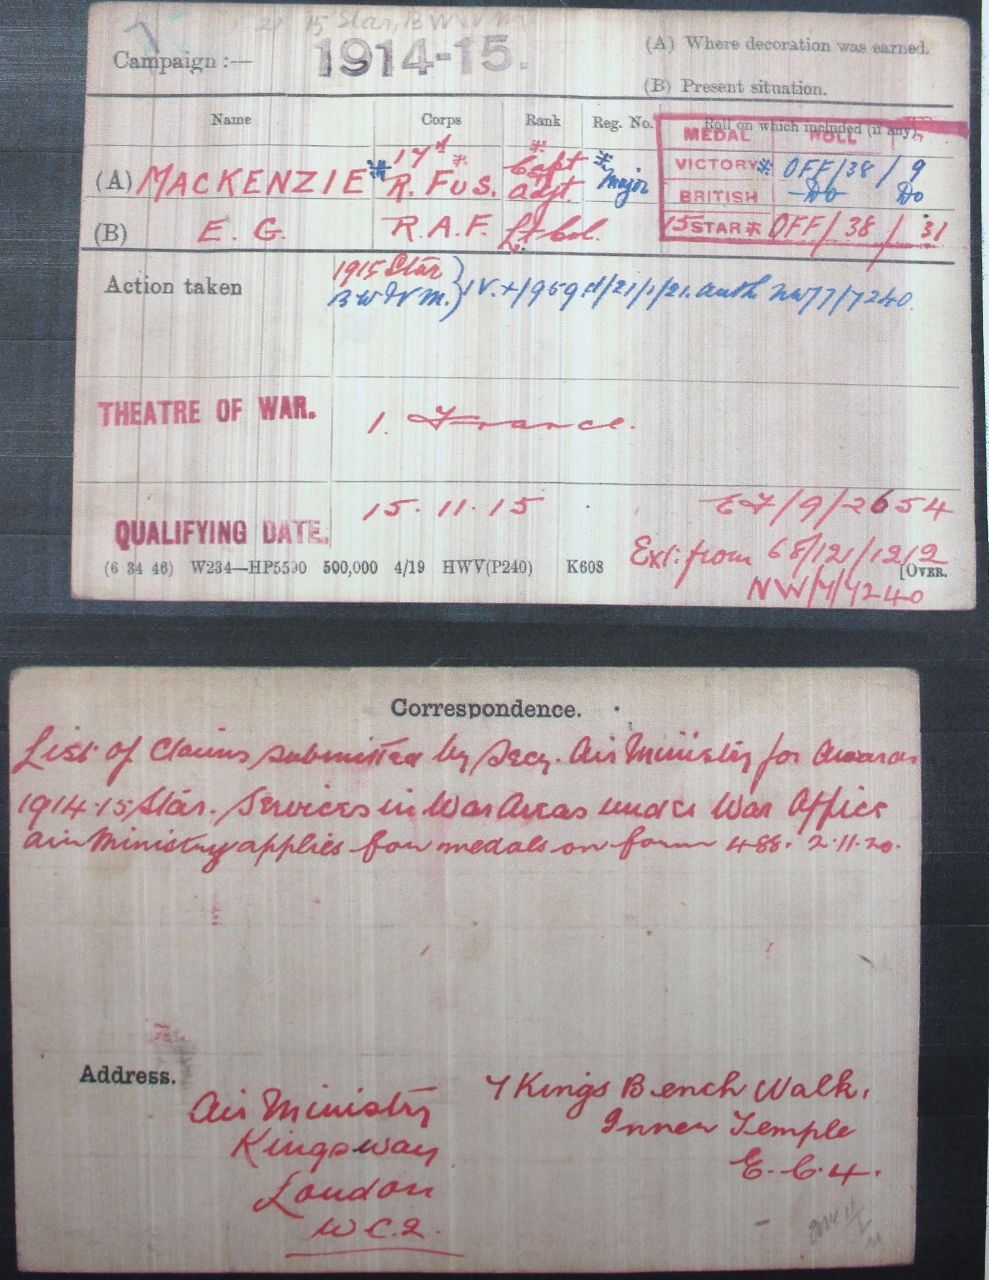 15 Star, B.W.V.M.
Campaign :— 1914-15.
(A) Where decoration was earned.
(B) Present situation.
Name Corps Rank Reg. No. Roll on which included (if any).
MEDAL ROLL
17th * * Capt
(A) MACKENZIE * R. Fus. adjt * Major
VICTORY * OFF/38/9
BRITISH -Do- Do
(B) E. G. R.A.F. Lt Col.
15 STAR * OFF/38/31
Action taken
1915 Star
B W & V M. } IV. +/959 d/21/1/21. auth NW/7/7240.
THEATRE OF WAR. 1. France.
QUALIFYING DATE. 15.11.15
/9/2654
Ext: from 68/121/1212
(6 34 46) W234—HP5590 500,000 4/19 HWV(P240) K608 [OVER.
NW/7/7240
Correspondence.
List of Claims submitted by Secy. Air Ministry for awards
1914-15 Star. Services in War Areas under War Office
Air Ministry applies for medals on form 488. 2.11.20.
Address.
Air Ministry
Kingsway
London
W.C.2.
7 Kings Bench Walk,
Inner Temple
E.C.4.